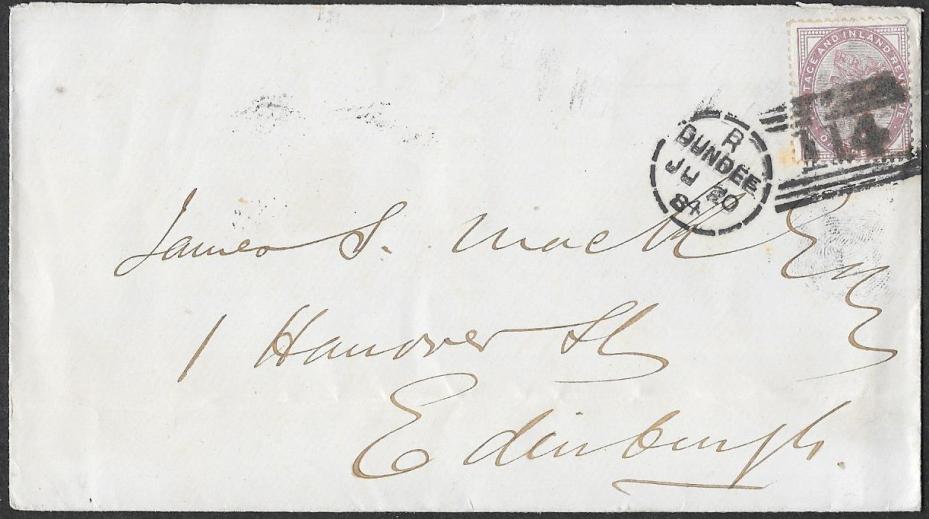 POSTAGE AND INLAND REVENUE
B
DUNDEE
JU 20
84
114
James S. Mack Esq
1 Hanover St
Edinburgh.